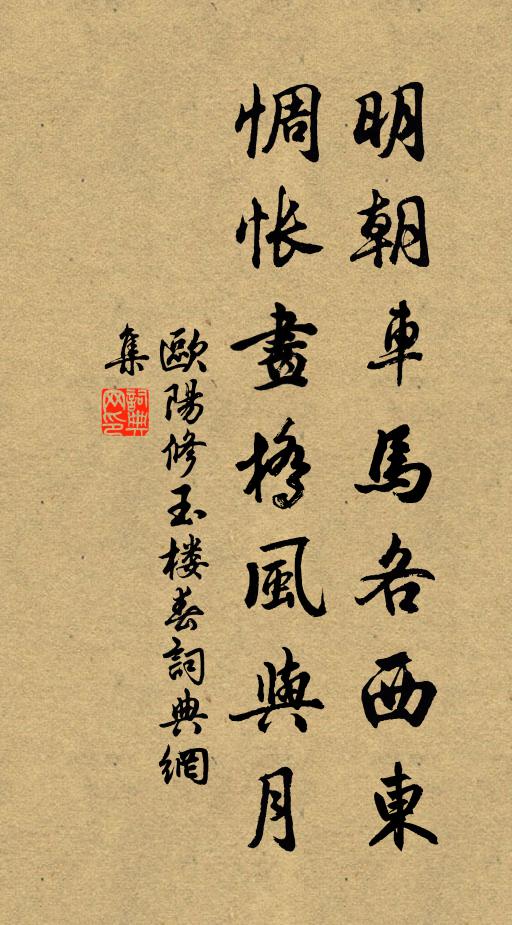 明朝車馬各西東
惆怅畫橋風與月
歐陽修玉楼春詞典網
集
詞典网印